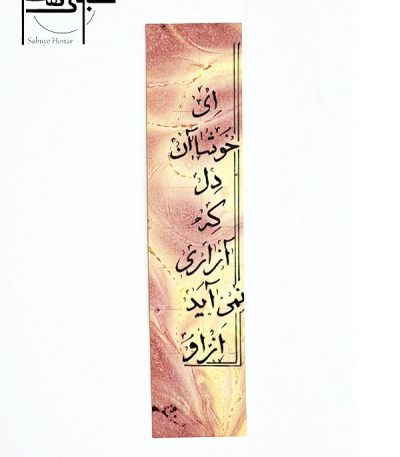 Sabuye Honar
اِی
خوشا آن
دِل
کِه
آزاری
نمی آید
اَز او